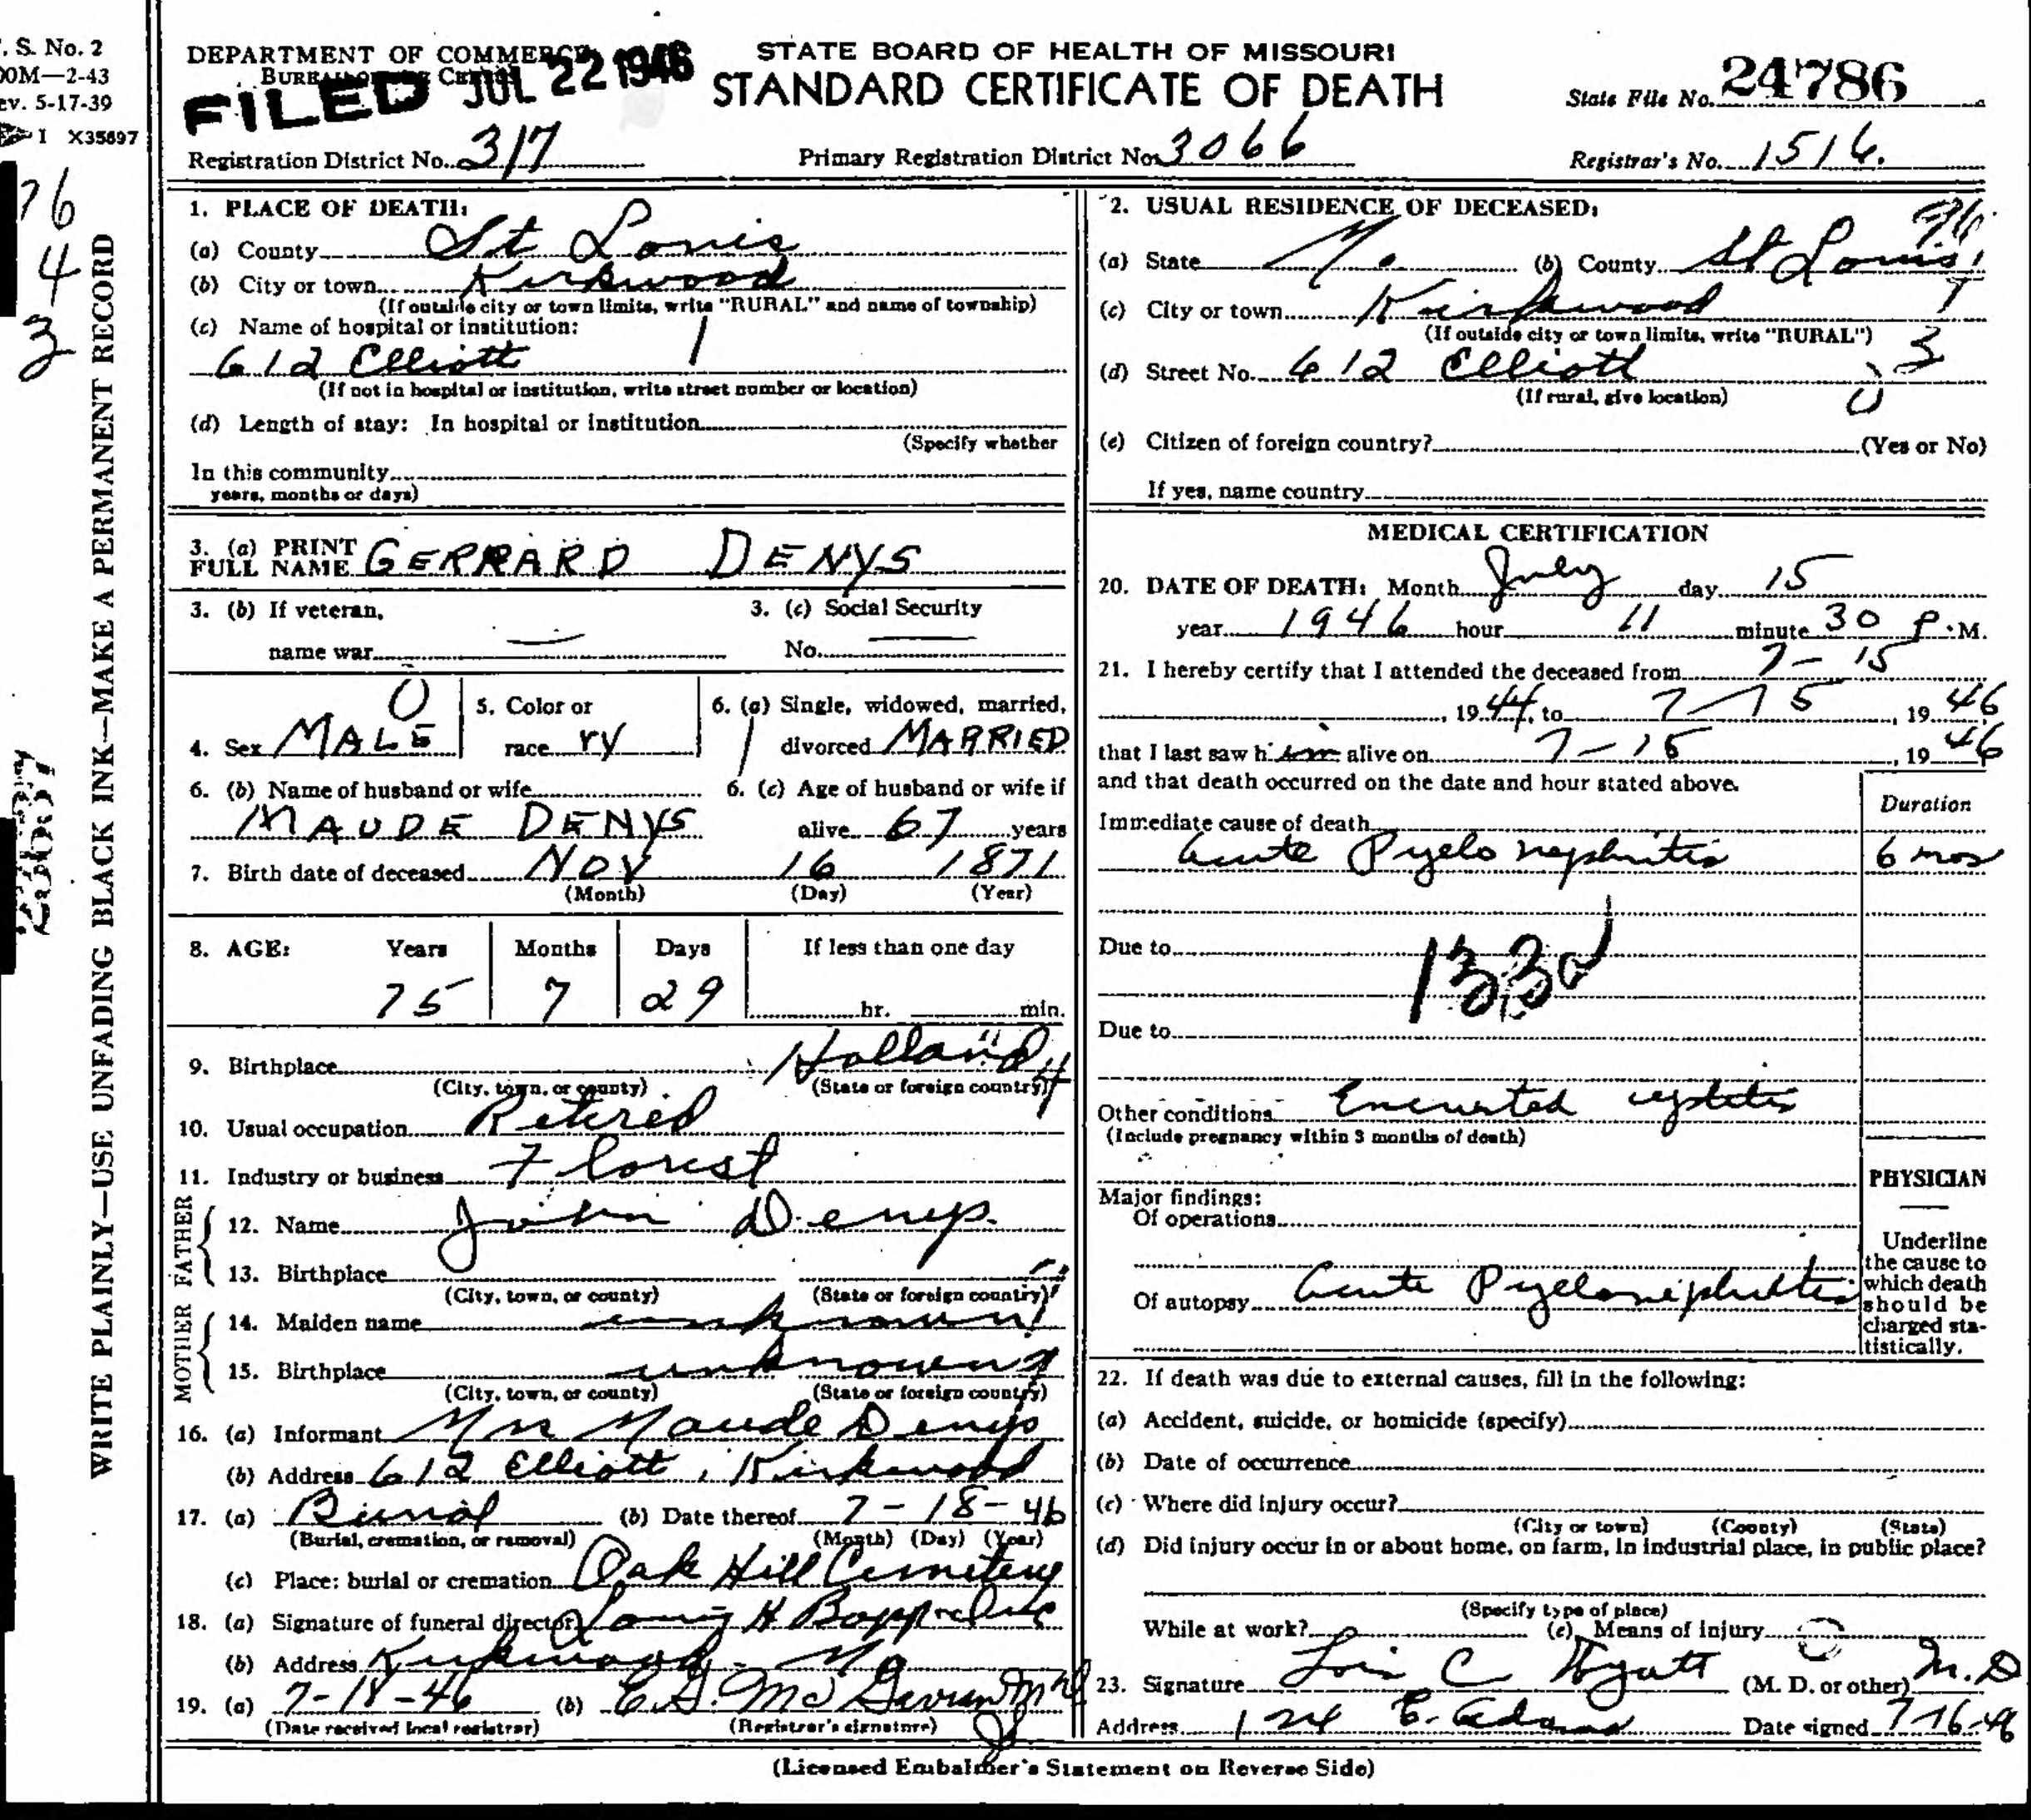 . S. No. 2
00M—2-43
ev. 5-17-39
I X35697
76
4
3
WRITE PLAINLY—USE UNFADING BLACK INK—MAKE A PERMANENT RECORD
DEPARTMENT OF COMMERCE
BUREAU OF THE CENSUS
FILED JUL 22 1946
STATE BOARD OF HEALTH OF MISSOURI
STANDARD CERTIFICATE OF DEATH
State File No. 24786
Registration District No. 317
Primary Registration District No. 3066
Registrar's No. 1516.
1. PLACE OF DEATH:
(a) County St Louis
(b) City or town Kirkwood
(If outside city or town limits, write "RURAL" and name of township)
(c) Name of hospital or institution:
612 Elliott 1
(If not in hospital or institution, write street number or location)
(d) Length of stay: In hospital or institution
(Specify whether
In this community
years, months or days)
2. USUAL RESIDENCE OF DECEASED:
(a) State Mo. (b) County St Louis
(c) City or town Kirkwood
(If outside city or town limits, write "RURAL")
(d) Street No. 612 Elliott
(If rural, give location)
(e) Citizen of foreign country? (Yes or No)
If yes, name country
3. (a) PRINT FULL NAME GERRARD DENYS
3. (b) If veteran, name war —
3. (c) Social Security No. —
4. Sex MALE
5. Color or race
6. (a) Single, widowed, married, divorced MARRIED
6. (b) Name of husband or wife MAUDE DENYS
6. (c) Age of husband or wife if alive 67 years
7. Birth date of deceased NOV 16 1871
(Month) (Day) (Year)
8. AGE: Years Months Days If less than one day
75 7 29 hr. min.
9. Birthplace Holland
(City, town, or county) (State or foreign country)
10. Usual occupation Retired
11. Industry or business Florest
FATHER
12. Name John Denys
13. Birthplace "
(City, town, or county) (State or foreign country)
MOTHER
14. Maiden name unknown
15. Birthplace unknown
(City, town, or county) (State or foreign country)
16. (a) Informant Mrs Maude Denys
(b) Address 612 Elliott, Kirkwood
17. (a) Burial (b) Date thereof 7-18-46
(Burial, cremation, or removal) (Month) (Day) (Year)
(c) Place: burial or cremation Oak Hill Cemetery
18. (a) Signature of funeral director Louis H Bopp
(b) Address Kirkwood - Mo
19. (a) 7-18-46 (b) E. G. Mc Gavran
(Date received local registrar) (Registrar's signature)
MEDICAL CERTIFICATION
20. DATE OF DEATH: Month July day 15
year 1946 hour 11 minute 30 P.M.
21. I hereby certify that I attended the deceased from 7-15
, 1944, to 7-15, 1946
that I last saw him alive on 7-15, 1946
and that death occurred on the date and hour stated above.
Duration
Immediate cause of death
Acute Pyelo nephritis 6 mos
Due to
133a
Due to
Other conditions Encrusted cystitis
(Include pregnancy within 3 months of death)
PHYSICIAN
Major findings:
Of operations
Of autopsy Acute Pyelonephritis
Underline the cause to which death should be charged statistically.
22. If death was due to external causes, fill in the following:
(a) Accident, suicide, or homicide (specify)
(b) Date of occurrence
(c) Where did injury occur?
(City or town) (County) (State)
(d) Did injury occur in or about home, on farm, in industrial place, in public place?
(Specify type of place)
While at work? (e) Means of injury
23. Signature Lois C Wyatt (M. D. or other) M.D
Address 124 E. Adams Date signed 7-16-46
(Licensed Embalmer's Statement on Reverse Side)